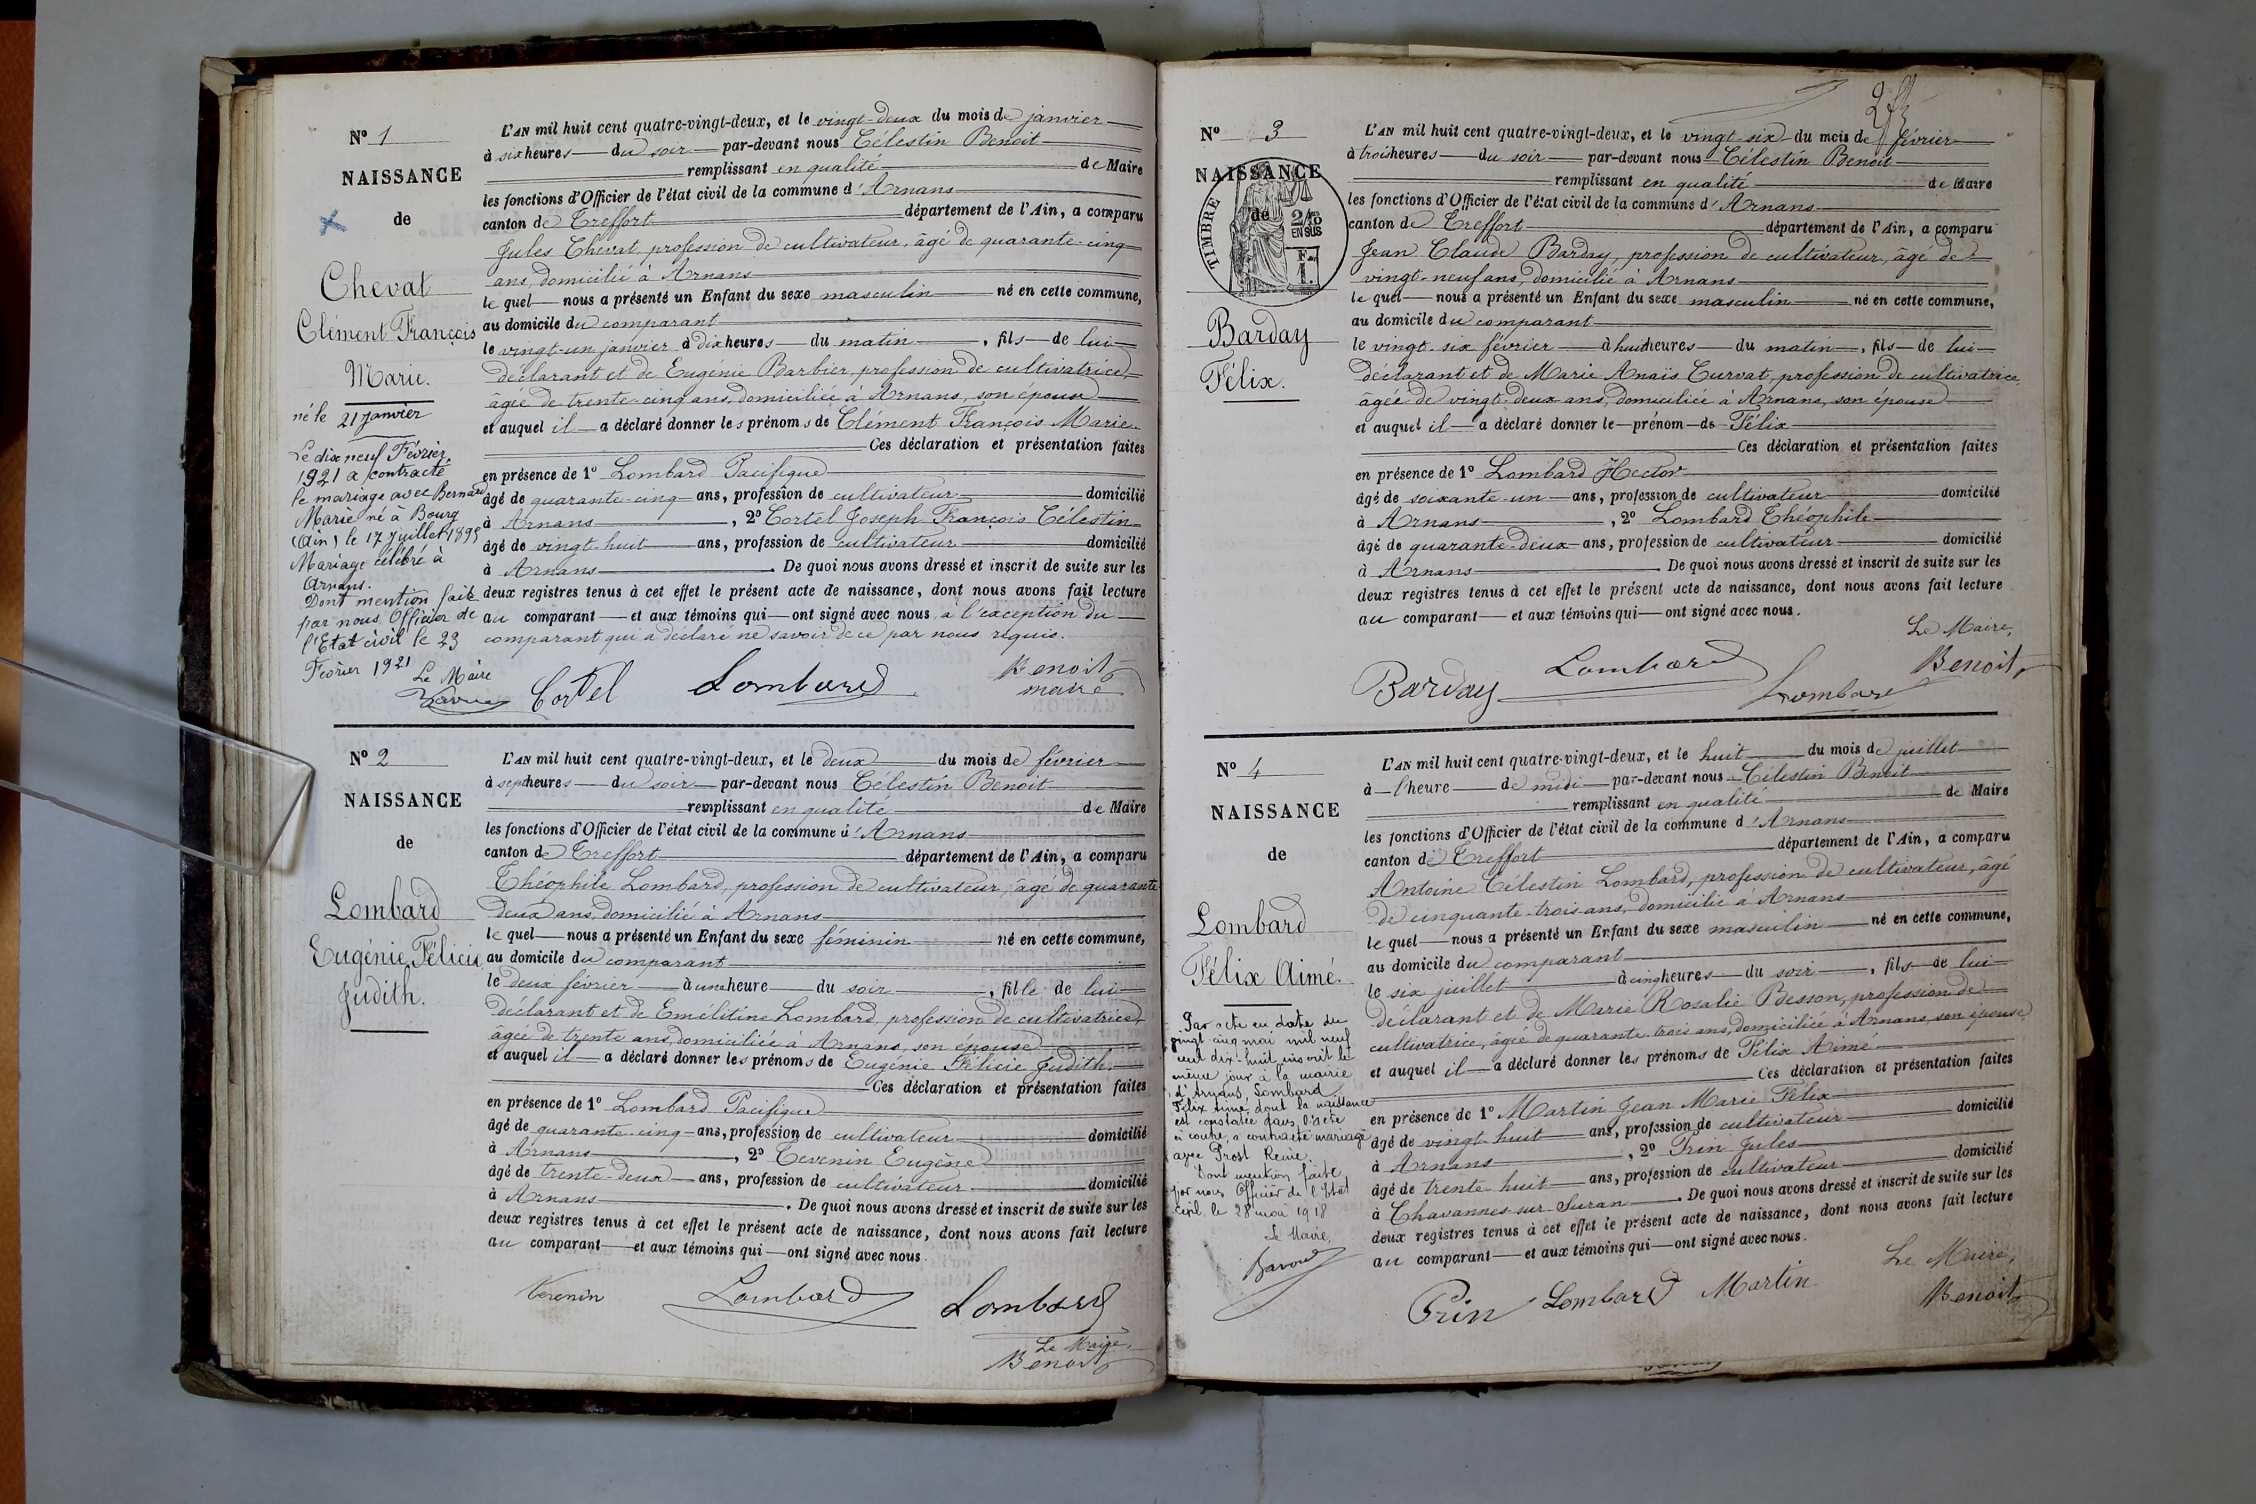 Nº 1
NAISSANCE
de
Chevat
Clément François
Marie.
né le 21 janvier
Le dix neuf Février
1921 a contracté
le mariage avec Bernard
Marie né à Bourg
(Ain) le 17 juillet 1895
Mariage célébré à
Arnans.
Dont mention faite
par nous Officier de
l'Etat civil le 23
Février 1921 Le Maire
L'AN mil huit cent quatre-vingt-deux, et le vingt-deux du mois de janvier
à six heures du soir par-devant nous Célestin Benoit
remplissant en qualité de Maire
les fonctions d'Officier de l'état civil de la commune d'Arnans
canton de Treffort département de l'Ain, a comparu
Jules Chevat, profession de cultivateur, âgé de quarante-cinq
ans, domicilié à Arnans
le quel nous a présenté un Enfant du sexe masculin né en cette commune,
au domicile du comparant
le vingt-un janvier à dix heures du matin, fils de lui
déclarant et de Eugénie Barbier, profession de cultivatrice,
âgée de trente-cinq ans, domiciliée à Arnans, son épouse
et auquel il a déclaré donner les prénoms de Clément François Marie
Ces déclaration et présentation faites
en présence de 1º Lombard Pacifique
âgé de quarante-cinq ans, profession de cultivateur domicilié
à Arnans, 2º Cortel Joseph François Célestin
âgé de vingt-huit ans, profession de cultivateur domicilié
à Arnans. De quoi nous avons dressé et inscrit de suite sur les
deux registres tenus à cet effet le présent acte de naissance, dont nous avons fait lecture
au comparant et aux témoins qui ont signé avec nous, à l'exception du
comparant qui a déclaré ne savoir de ce par nous requis.
Cortel Lombard Benoit
maire
Nº 2
NAISSANCE
de
Lombard
Eugénie Félicie
Judith.
L'AN mil huit cent quatre-vingt-deux, et le deux du mois de février
à sept heures du soir par-devant nous Célestin Benoit
remplissant en qualité de Maire
les fonctions d'Officier de l'état civil de la commune d'Arnans
canton de Treffort département de l'Ain, a comparu
Théophile Lombard, profession de cultivateur, âgé de quarante
deux ans, domicilié à Arnans
le quel nous a présenté un Enfant du sexe féminin né en cette commune,
au domicile du comparant
le deux février à une heure du soir, fille de lui
déclarant et de Emélitine Lombard, profession de cultivatrice,
âgée de trente ans, domiciliée à Arnans, son épouse
et auquel il a déclaré donner les prénoms de Eugénie Félicie Judith.
Ces déclaration et présentation faites
en présence de 1º Lombard Pacifique
âgé de quarante-cinq ans, profession de cultivateur domicilié
à Arnans, 2º Tevenin Eugène
âgé de trente-deux ans, profession de cultivateur domicilié
à Arnans. De quoi nous avons dressé et inscrit de suite sur les
deux registres tenus à cet effet le présent acte de naissance, dont nous avons fait lecture
au comparant et aux témoins qui ont signé avec nous.
Tevenin Lombard Lombard
Le Maire,
Benoit
Nº 3
NAISSANCE
de
TIMBRE
2/10
EN SUS
Barday
Félix.
L'AN mil huit cent quatre-vingt-deux, et le vingt-six du mois de février
à trois heures du soir par-devant nous Célestin Benoit
remplissant en qualité de Maire
les fonctions d'Officier de l'état civil de la commune d'Arnans
canton de Treffort département de l'Ain, a comparu
Jean Claude Barday, profession de cultivateur, âgé de
vingt-neuf ans, domicilié à Arnans
le quel nous a présenté un Enfant du sexe masculin né en cette commune,
au domicile du comparant
le vingt-six février à huit heures du matin, fils de lui
déclarant et de Marie Anaïs Curvat, profession de cultivatrice,
âgée de vingt-deux ans, domiciliée à Arnans, son épouse
et auquel il a déclaré donner le prénom de Félix
Ces déclaration et présentation faites
en présence de 1º Lombard Hector
âgé de soixante-un ans, profession de cultivateur domicilié
à Arnans, 2º Lombard Théophile
âgé de quarante-deux ans, profession de cultivateur domicilié
à Arnans. De quoi nous avons dressé et inscrit de suite sur les
deux registres tenus à cet effet le présent acte de naissance, dont nous avons fait lecture
au comparant et aux témoins qui ont signé avec nous.
Le Maire,
Barday Lombard Lombard Benoit
Nº 4
NAISSANCE
de
Lombard
Félix Aimé.
Par acte en date du
vingt cinq mai mil neuf
cent dix-huit inscrit le
même jour à la mairie
d'Arnans, Lombard
Félix Aimé, dont la naissance
est constatée dans l'acte
ci contre, a contracté mariage
avec Prost Reine.
Dont mention faite
par nous Officier de l'Etat
civil le 28 mai 1918
Le Maire,
L'AN mil huit cent quatre-vingt-deux, et le huit du mois de juillet
à l'heure de midi par-devant nous Célestin Benoit
remplissant en qualité de Maire
les fonctions d'Officier de l'état civil de la commune d'Arnans
canton de Treffort département de l'Ain, a comparu
Antoine Célestin Lombard, profession de cultivateur, âgé
de cinquante-trois ans, domicilié à Arnans
le quel nous a présenté un Enfant du sexe masculin né en cette commune,
au domicile du comparant
le six juillet à cinq heures du soir, fils de lui
déclarant et de Marie Rosalie Besson, profession de
cultivatrice, âgée de quarante-trois ans, domiciliée à Arnans, son épouse
et auquel il a déclaré donner les prénoms de Félix Aimé
Ces déclaration et présentation faites
en présence de 1º Martin Jean Marie Félix
âgé de vingt-huit ans, profession de cultivateur domicilié
à Arnans, 2º Prin Jules
âgé de trente-huit ans, profession de cultivateur domicilié
à Chavannes-sur-Suran. De quoi nous avons dressé et inscrit de suite sur les
deux registres tenus à cet effet le présent acte de naissance, dont nous avons fait lecture
au comparant et aux témoins qui ont signé avec nous.
Le Maire,
Prin Lombard Martin Benoit